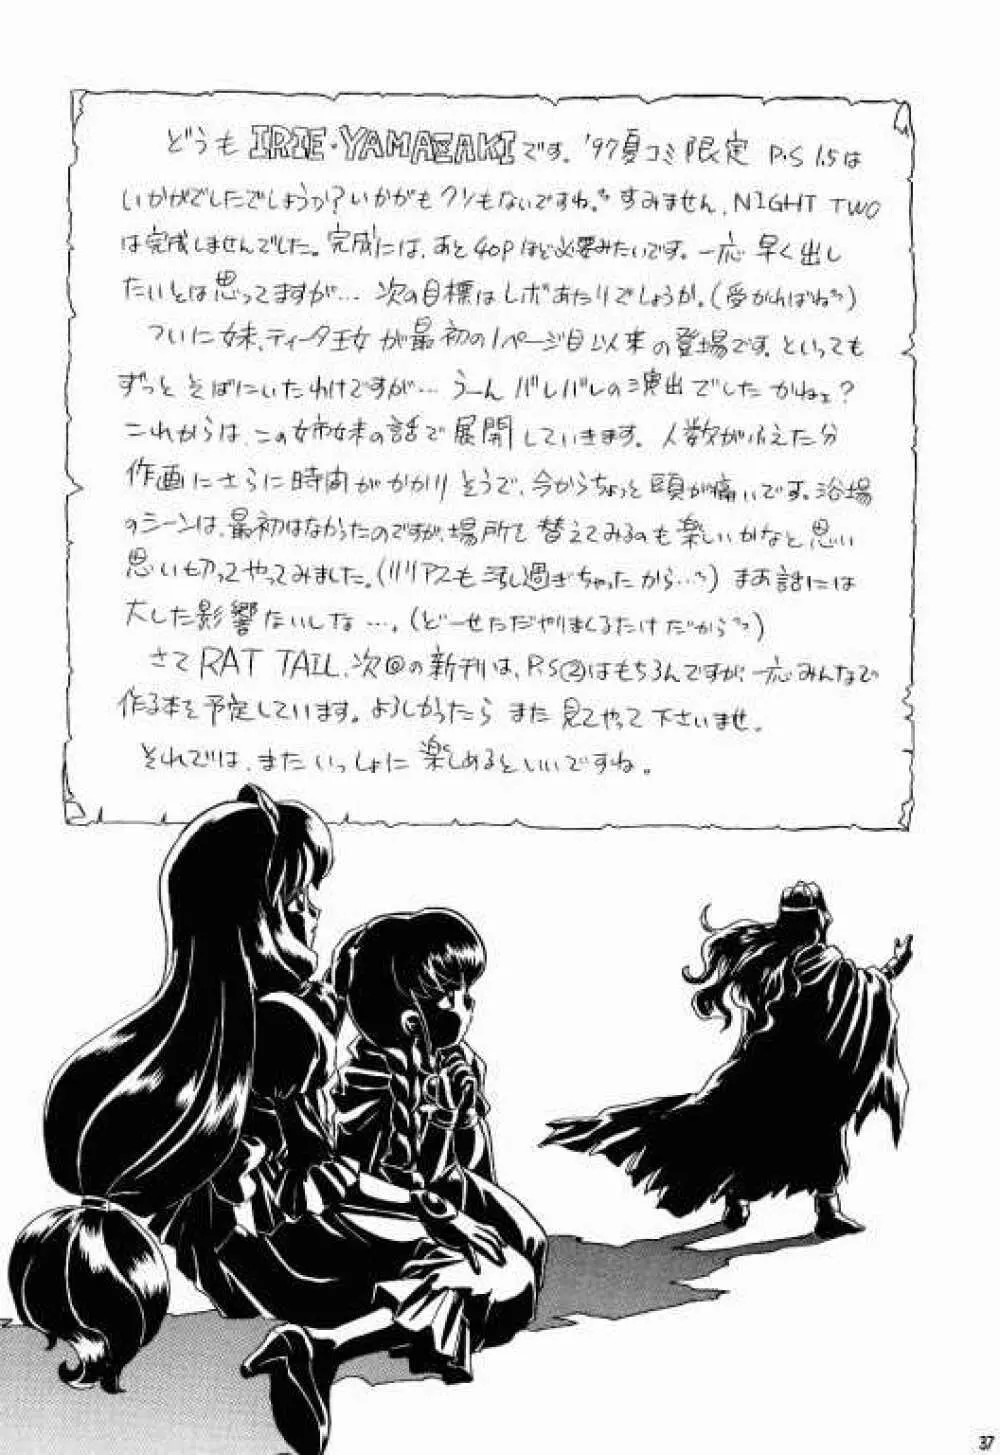 どうも IRIE・YAMAZAKIです。'97夏コミ限定 P.S 1.5は
いかがでしたでしょうか?いかがもクソもないですね。すみません、NIGHT TWO
は完成しませんでした。完成には、あと40Pほど必要みたいです。一応早く出し
たいとは思ってますが… 次の目標はレボあたりでしょうか。(受かればね)
ついに妹、ティータ王女が最初の1ページ目以来の登場です。といっても
ずっとそばにいたわけですが… うーん バレバレの演出でしたかねェ?
これからは、この姉妹の話で展開していきます。人数がふえた分
作画にさらに時間がかかりそうで、今からちょっと頭が痛いです。浴場
のシーンは、最初はなかったのですが、場所を替えてみるのも楽しいかなと思い
思い切ってやってみました。(リリアスも汚し過ぎちゃったから…) まあ話には
大した影響ないしな…。(どーせただやりまくるだけだから)
さて RAT TAIL、次回の新刊は、P.S②はもちろんですが、一応みんなで
作る本を予定しています。よろしかったら また見てやって下さいませ。
それでは、またいっしょに楽しめるといいですね。
37